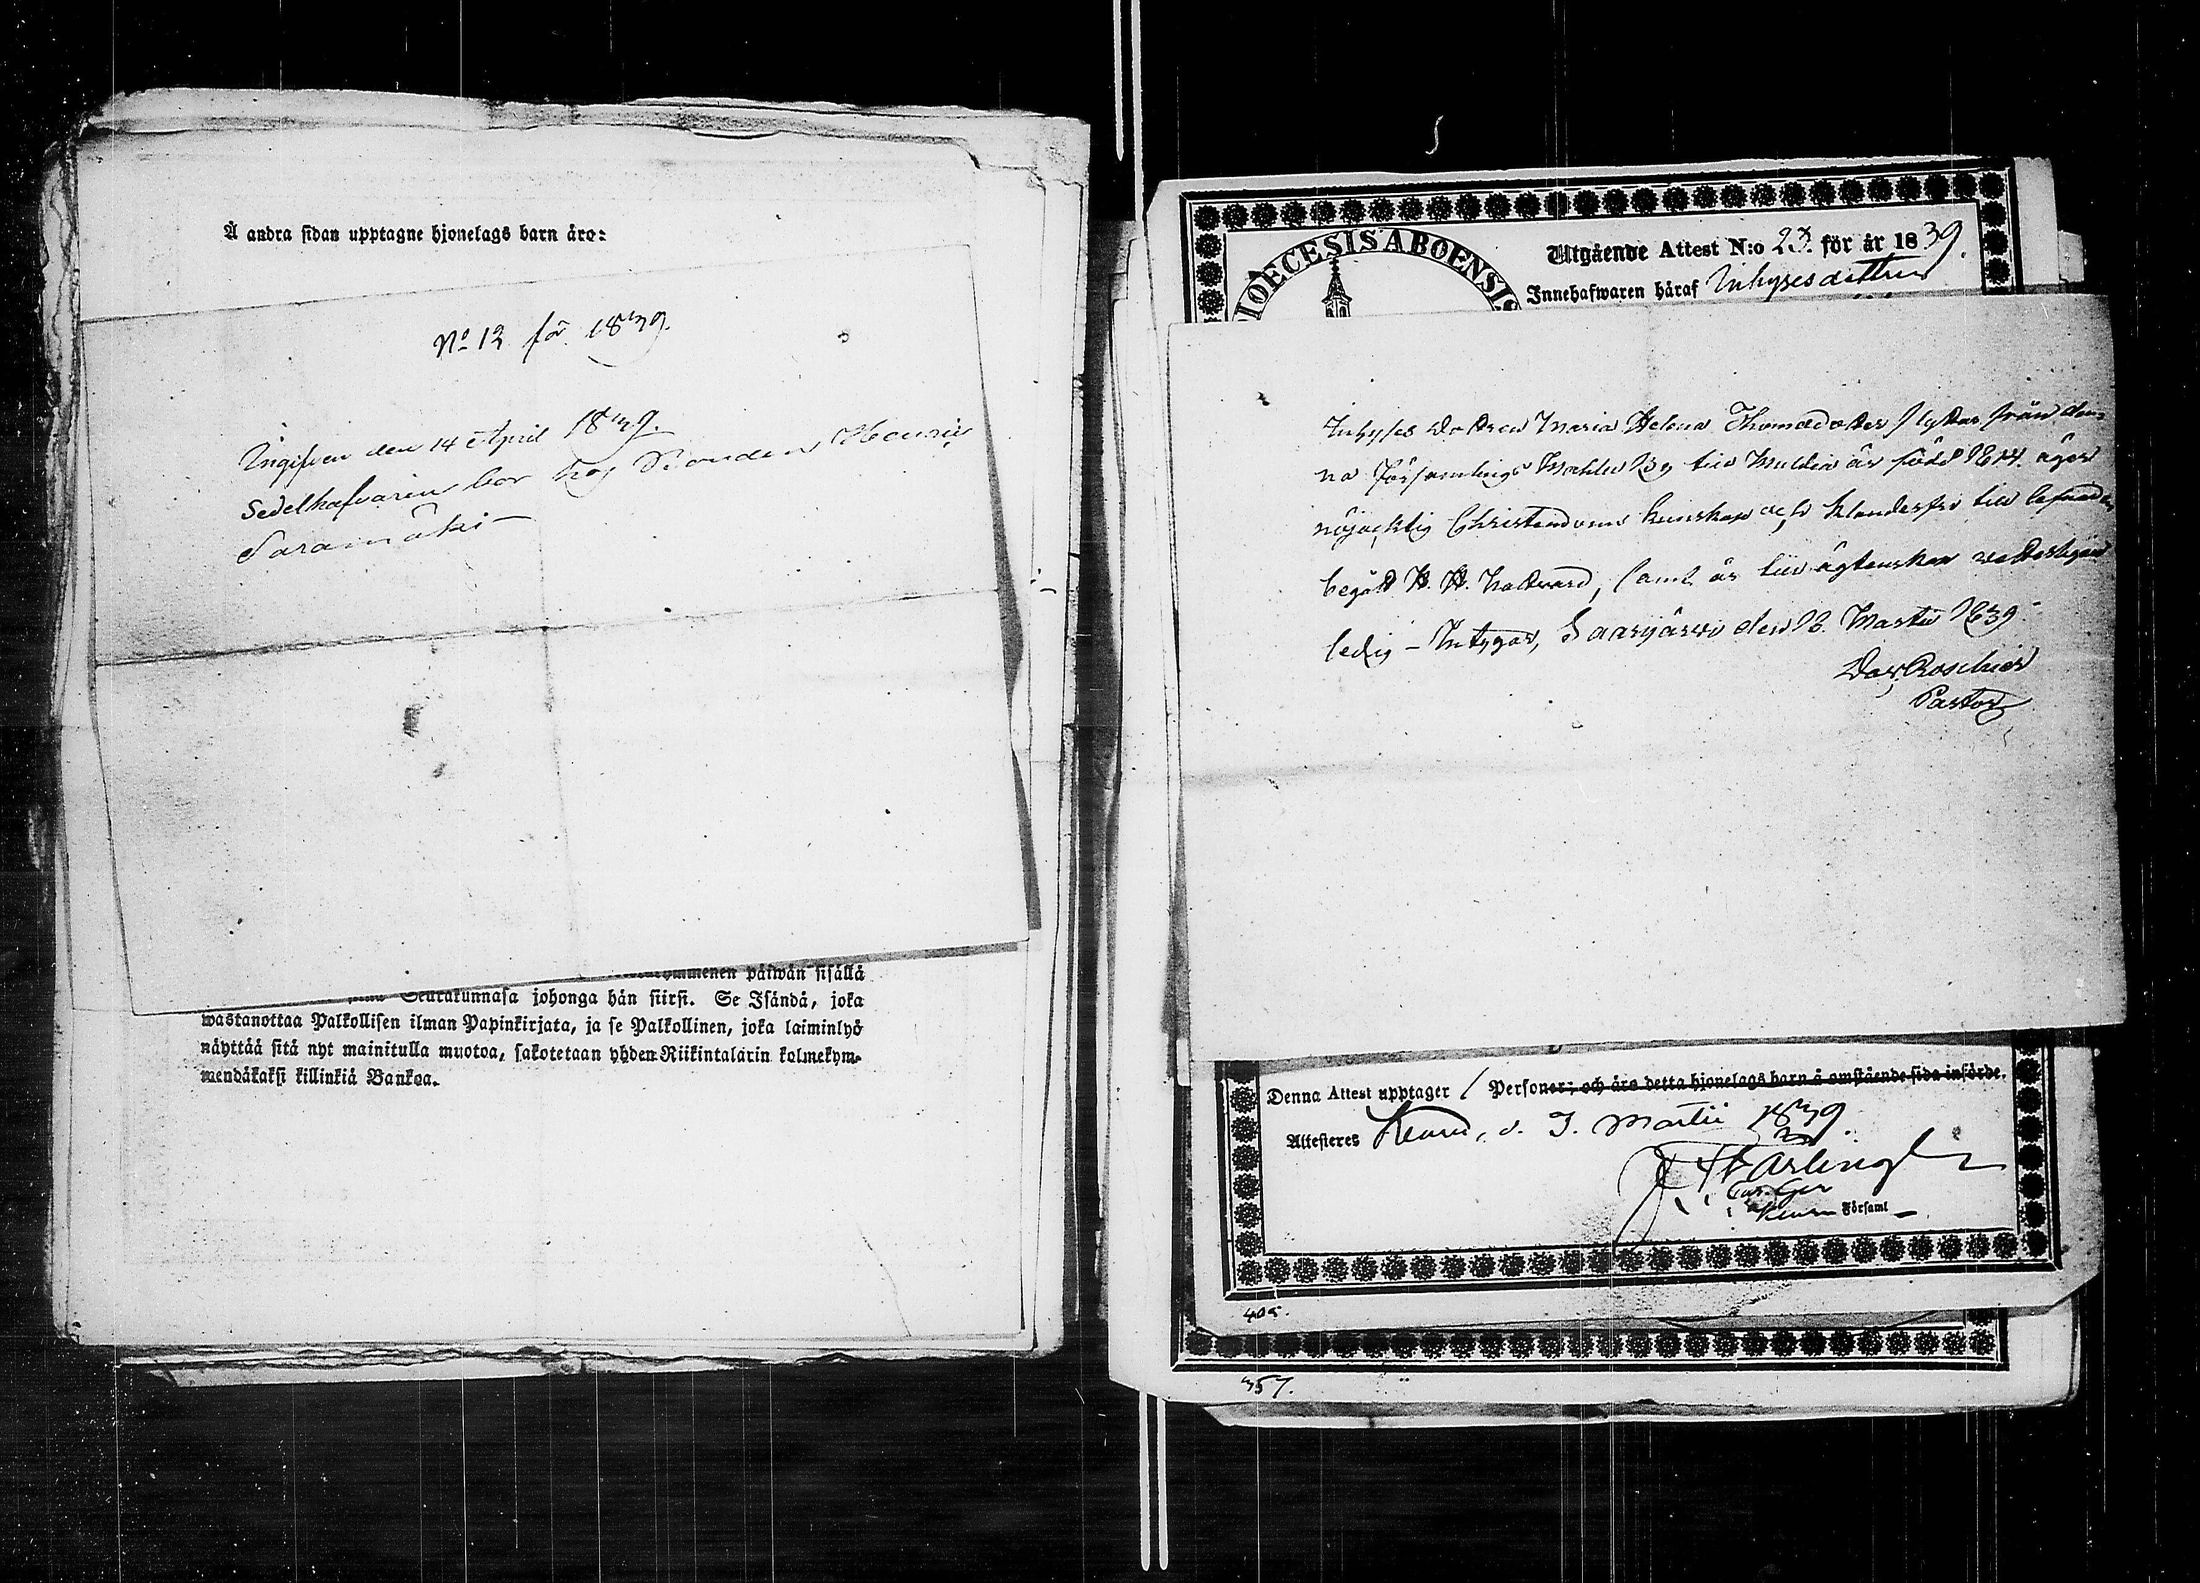 Å andra sidan upptagne hjonelags barn äro:
No 12 för 1839.
Ingifven den 14 April 1839.
Sedelhafvarin bor hos Bonden Henric
Saramäki
påiwån sisällä
Seurakunnasa johonga hän siirsi. Se Isändä, joka
wastanottaa Palkollisen ilman Papinkirjata, ja se Palkollinen, joka laiminlyö
näyttää sitä nyt mainitulla muotoa, sakotetaan yhden Riikintalarin kolmekym-
mendäkaksi killinkiä Bankoa.
DIOECESIS ABOENSIS
Utgående Attest N:o 23. för år 1839.
Innehafwaren häraf Inhyses dottren
Inhyses Dottren Maria Helena Thomædotter flyttar från den-
na Församlings till Multia är född 1814. äger
nöjagktig Christendoms kunskap och klanderfri till lefnaden
begått H. H. Nattvard, samt är till ägtenskap
ledig – Intygar, Saarijärvi den 18. Martii 1839.
Dav. Roschier
Pastor
Denna Attest upptager 1 Personer; och äro detta hjonelags barn å omstående sida införde.
Attesteras Keuru, d. 3. Martii 1839.
Keuru Församl
405.
357.